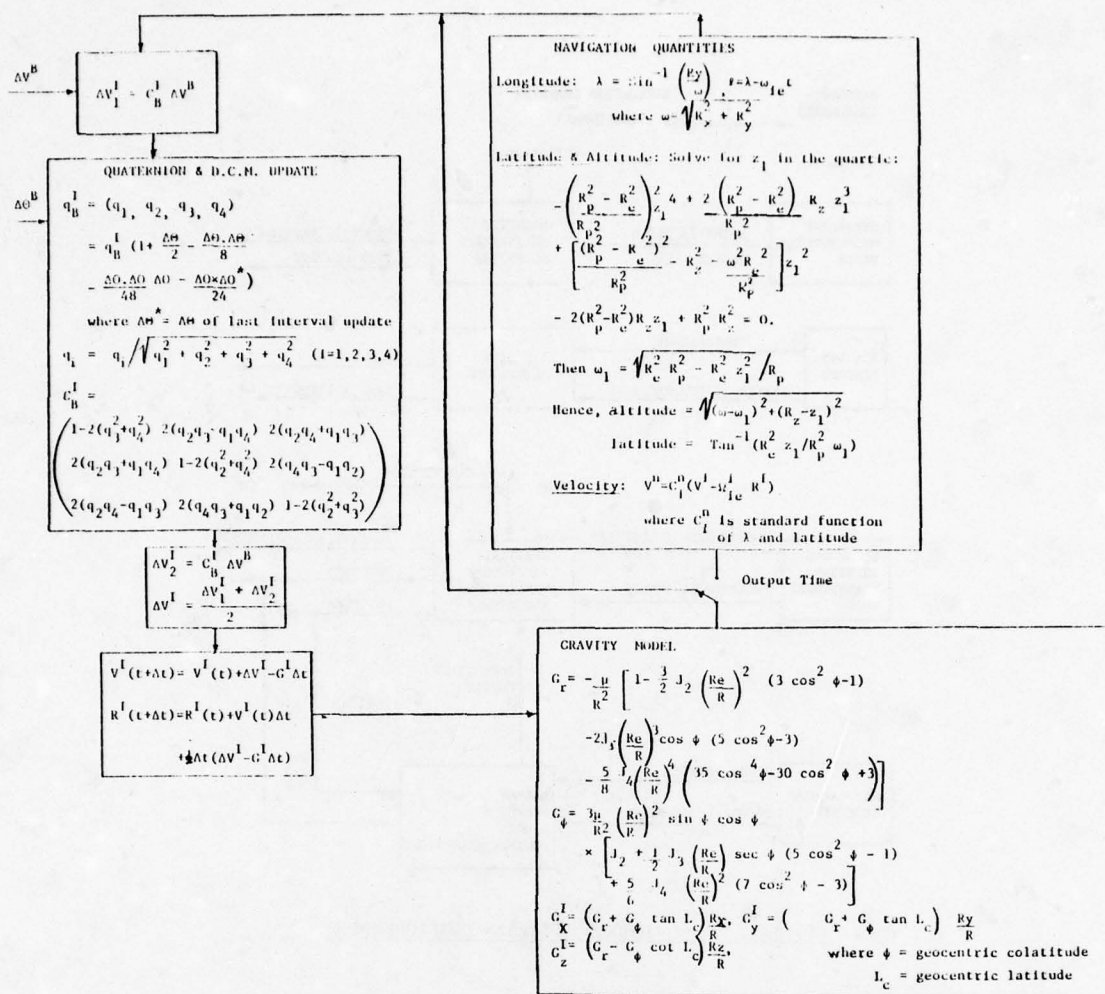 ΔV^B
ΔV_1^I = C_B^I ΔV^B
QUATERNION & D.C.M. UPDATE
Δθ^B
q_B^I = (q_1, q_2, q_3, q_4)
= q_B^I (1+ Δθ/2 - Δθ.Δθ/8
- Δθ.Δθ/48 Δθ - Δθ×Δθ^*/24)
where Δθ^* = Δθ of last interval update
q_i = q_i/√(q_1^2 + q_2^2 + q_3^2 + q_4^2) (i=1,2,3,4)
C_B^I =
1-2(q_3^2+q_4^2) 2(q_2q_3-q_1q_4) 2(q_2q_4+q_1q_3)
2(q_2q_3+q_1q_4) 1-2(q_2^2+q_4^2) 2(q_4q_3-q_1q_2)
2(q_2q_4-q_1q_3) 2(q_4q_3+q_1q_2) 1-2(q_2^2+q_3^2)
ΔV_2^I = C_B^I ΔV^B
ΔV^I = (ΔV_1^I + ΔV_2^I)/2
V^I(t+Δt)= V^I(t)+ΔV^I-G^IΔt
R^I(t+Δt)=R^I(t)+V^I(t)Δt
+½Δt(ΔV^I-G^IΔt)
NAVIGATION QUANTITIES
Longitude: λ = Sin^-1 (Ry/ω), ℓ=λ-ω_ie t
where ω=√(R_x^2 + R_y^2)
Latitude & Altitude: Solve for z_1 in the quartic:
-((R_p^2 - R_e^2)/R_p^2)^2 z_1^4 + 2 (R_p^2 - R_e^2)/R_p^2 R_z z_1^3
+ [(R_p^2 - R_e^2)^2/R_p^2 - R_z^2 - ω^2R_e^2/R_p^2] z_1^2
- 2(R_p^2-R_e^2)R_z z_1 + R_p^2 R_z^2 = 0.
Then ω_1 = √(R_e^2 R_p^2 - R_e^2 z_1^2)/R_p
Hence, altitude = √((ω-ω_1)^2+(R_z-z_1)^2)
latitude = Tan^-1(R_e^2 z_1/R_p^2 ω_1)
Velocity: V^n=C_i^n(V^i-Ω_ie^i R^i)
where C_i^n is standard function
of λ and latitude
Output Time
GRAVITY MODEL
G_r = -μ/R^2 [1- 3/2 J_2 (Re/R)^2 (3 cos^2 φ-1)
-2J_3(Re/R)^3 cos φ (5 cos^2φ-3)
- 5/8 J_4(Re/R)^4 (35 cos^4φ-30 cos^2 φ +3)]
G_φ = 3μ/R^2 (Re/R)^2 sin φ cos φ
× [J_2 + 1/2 J_3 (Re/R) sec φ (5 cos^2 φ - 1)
+ 5/6 J_4 (Re/R)^2 (7 cos^2 φ - 3)]
G_x^I = (G_r+ G_φ tan L_c)Rx/R, G_y^I = ( G_r+ G_φ tan L_c) Ry/R
G_z^I= (G_r- G_φ cot L_c)Rz/R, where φ = geocentric colatitude
L_c = geocentric latitude